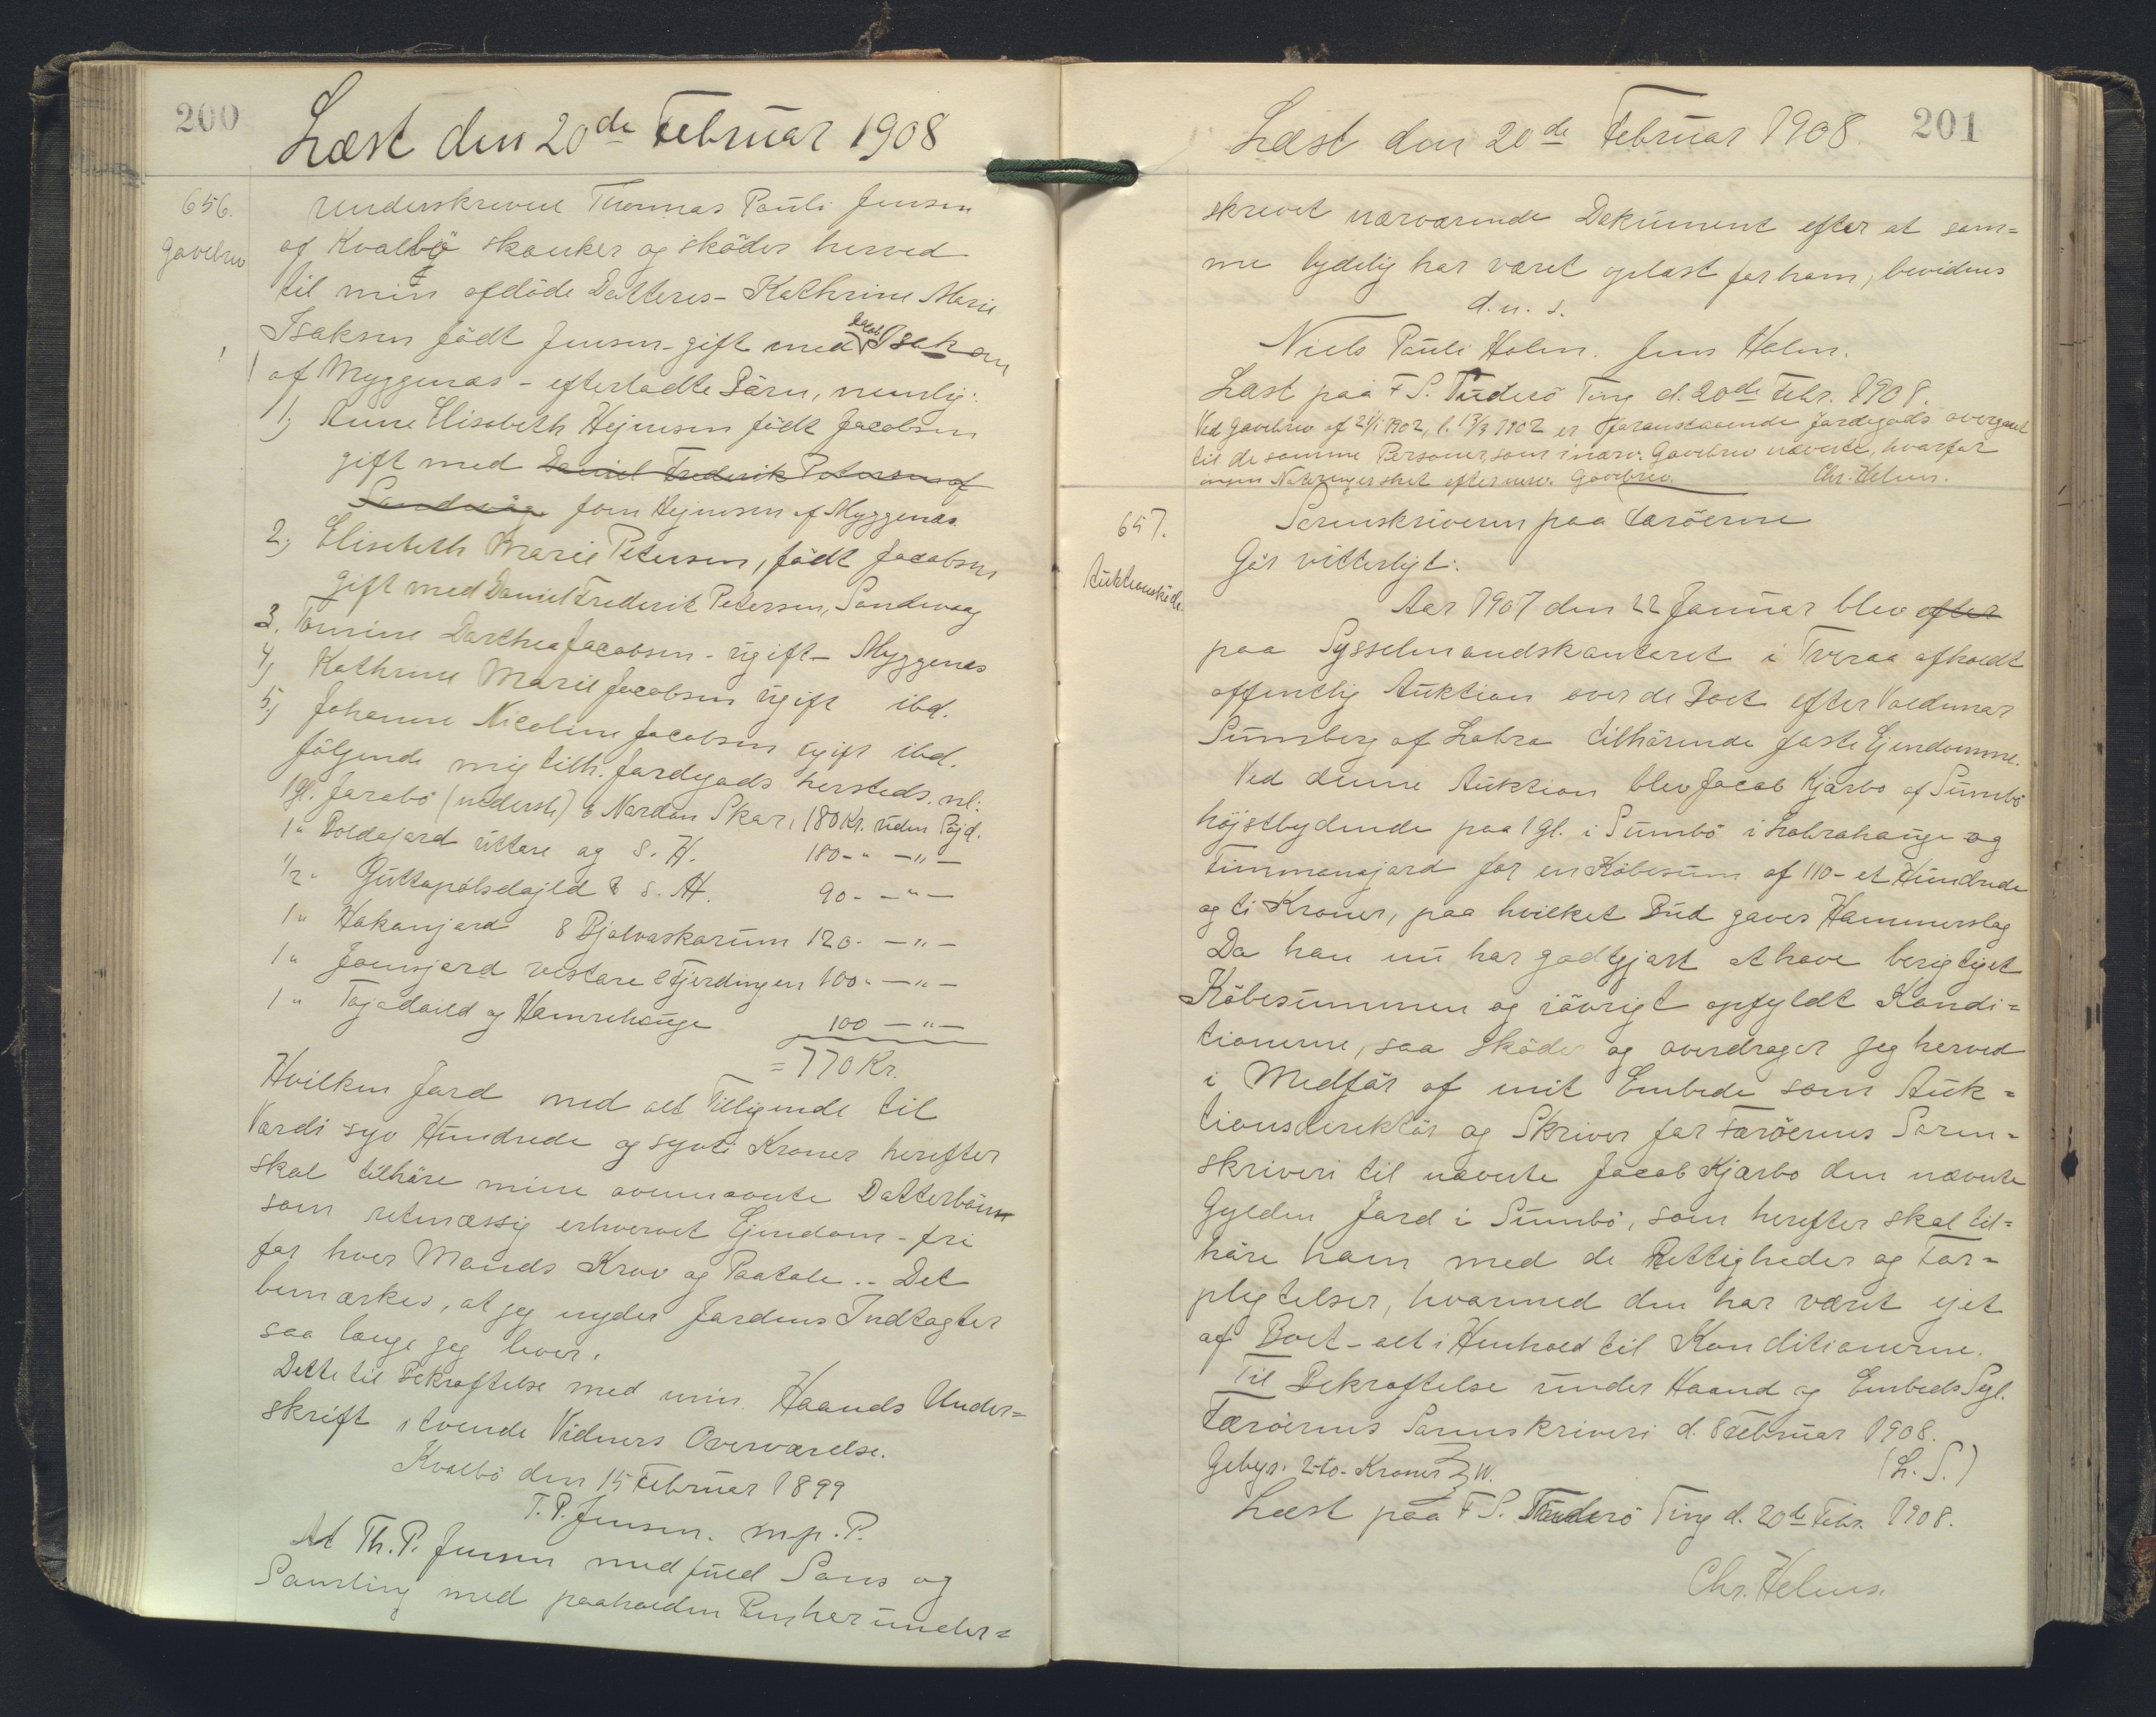 200
Læst den 20de Februar 1908
656.
Gavebrev
Underskrevne Thomas Pauli Jensen
af Kvalbö skænker og sköder herved
til min afdöde Datters - Kathrine Marie
Isaksen födt Jensen - gift med Jacob Isaksen
af Myggenæs - efterladte Börn, nemlig:
1, Anne Elisabeth Hejnesen födt Jacobsen
gift med Daniel Frederik Petersen af
Sandevåg Joen Hejnesen af Myggenæs.
2, Elisabeth Marie Petersen, födt Jacobsen
gift med Daniel Frederik Petersen, Sandevaag
3. Tomine Darthea Jacobsen - ugift - Myggenæs
4, Kathrine Marie Jacobsen ugift ibd.
5, Johanne Nicoline Jacobsen ugift ibd.
fölgende mig tilh. Jordegods hersteds. nl:
1 gl. Jarabö (nederste) & Nordan Skar, 180 Kr. uden Pøjd.
1 " Boldajard uttare og S. H. 180 - " - " -
1/2 " Guttapálsdajld & S. H. 90 - - " -
1 " Hakanjard & Bjálvaskorum 120 - - " -
1 " Joensjard vestare & Fjerdingen 100 " - " -
1 " Tajadaild og Hamrehauge 100 - " -
= 770 Kr.
Hvilken Jord med alt Tilligende til
Værdi syv Hundrede og syvti Kroner herefter
skal tilhöre mine ovennævnte Datterbörn
som retmæssig erhvervet Ejendom - fri
for hver Mands Krav og Paatale. - Det
bemærkes, at jeg nyder Jordens Indtægter
saa længe jeg lever.
Dette til Bekræftelse med min Haands Under=
skrift i tvende Vidners Overværelse.
Kvalbö den 15 Februar 1899
T. P. Jensen. m. p. P.
At Th. P. Jensen med fuld Sans og
Samling med paaholden Pen har under=
201
Læst den 20de Februar 1908.
skrevet nærværende Dokument efter at sam=
me tydelig har været oplæst for ham, bevidnes
d. u. s.
Niels Pauli Holm. Jens Holm.
Læst paa F S. Suderö Ting d. 20de Febr. 1908.
Ved Gavebrev af 21/1 1902, l. 13/3 1902 er foranstaaende Jordegods overgaaet
til de samme Personer, som i nærv. Gavebrev nævnte, hvorfor
ingen Noteringer sket efter nærv. Gavebrev. Chr. Helms.
657.
Auktionsskøde
Sorenskriveren paa Færöerne
Gör vitterligt:
Aar 1907 den 22 Januar blev efter
paa Sysselmandskontoret i Tveraa afholdt
offentlig Auktion over de Boet efter Valdemar
Sumsberg af Lobra tilhörende faste Ejendomme.
Ved denne Auktion blev Jacob Kjærbo af Sumbö
højstbydende paa 1 gl. i Sumbö i Lobrahauge og
Timmansjard for en Köbesum af 110 - et Hundrede
og ti Kroner, paa hvilket Bud gaves Hammerslag
Da han nu har godtgjort at have berigtiget
Köbesummen og iövrigt opfyldt Kondi=
tionerne, saa sköder og overdrager jeg herved
i Medför af mit Embede som Auk=
tionsdirektör og Skriver for Færöernes Soren=
skriveri til nævnte Jacob Kjærbo den nævnte
Gylden Jord i Sumbö, som herefter skal til=
höre ham med de Rettigheder og For=
pligtelser, hvormed den har været ejet
af Boet - alt i Henhold til Konditionerne.
Til Bekræftelse under Haand og Embeds Segl.
Færöernes Sorenskriveri d. 8 Februar 1908.
Gebyr. 2 to - Kroner } W. (L. S.)
Læst paa F S. Suderö Ting d. 20de Febr. 1908.
Chr. Helms.